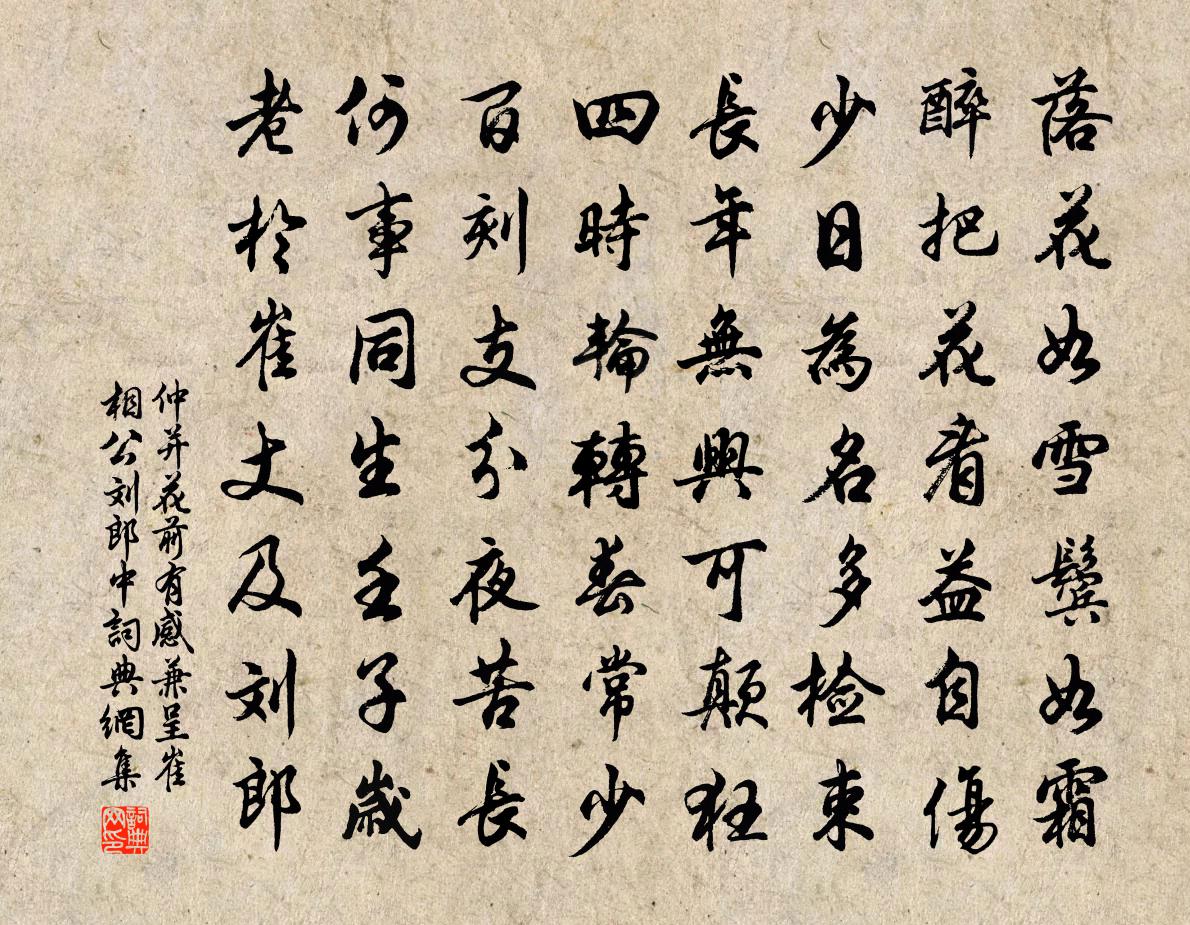 落花如雪鬢如霜
醉把花看益自傷
少日為名多检束
長年無興可颠狂
四時輪轉春常少
百刻支分夜苦長
何事同生壬子歲
老於崔丈及刘郎
仲并花前有感兼呈崔
相公刘郎中詞典網集
詞典
网印